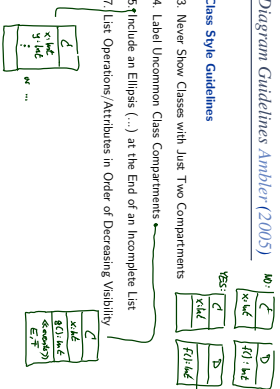 Diagram Guidelines Ambler (2005)
Class Style Guidelines
3. Never Show Classes with Just Two Compartments
4. Label Uncommon Class Compartments
5. Include an Ellipsis (...) at the End of an Incomplete List
7. List Operations/Attributes in Order of Decreasing Visibility
NO:
C
x: Int
D
f(): Int
YES:
C
x: Int
D
f(): Int
C
x: Int
y: Int
⋮
or ...
C
x: Int
g(): Int
E, F